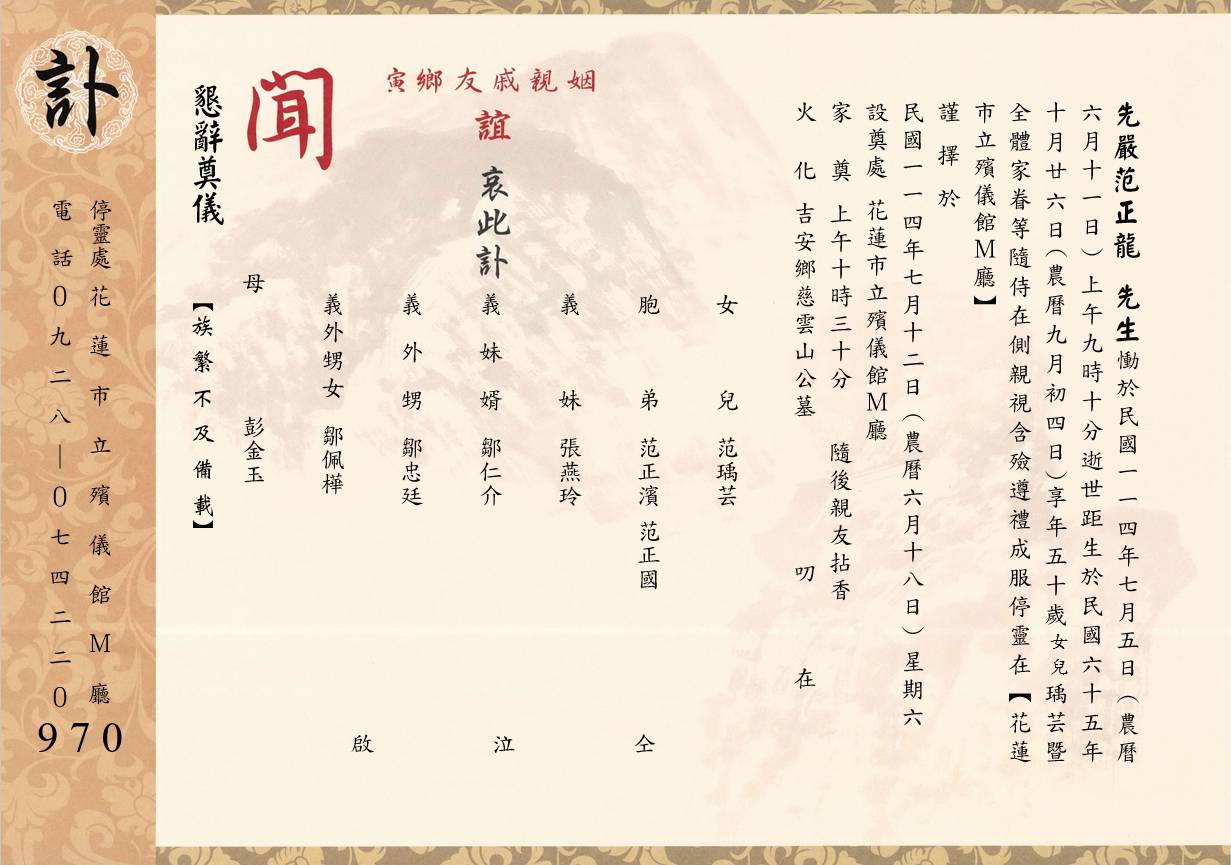 先嚴范正龍 先生慟於民國一一四年七月五日（農曆
六月十一日）上午九時十分逝世距生於民國六十五年
十月廿六日（農曆九月初四日）享年五十歲女兒瑀芸暨
全體家眷等隨侍在側親視含殮遵禮成服停靈在【花蓮
市立殯儀館M廳】
謹擇於
民國一一四年七月十二日（農曆六月十八日）星期六
設奠處 花蓮市立殯儀館M廳
家奠 上午十時三十分 隨後親友拈香
火化 吉安鄉慈雲山公墓
叨在
姻親戚友鄉寅
誼
哀此訃
聞
女兒 范瑀芸
胞弟 范正濱 范正國
義妹 張燕玲
義妹婿 鄒仁介
義外甥 鄒忠廷
義外甥女 鄒佩樺
母 彭金玉
仝泣啟
懇辭奠儀
【族繁不及備載】
訃
停靈處 花蓮市立殯儀館M廳
電話0九二八—0七四二二0
970